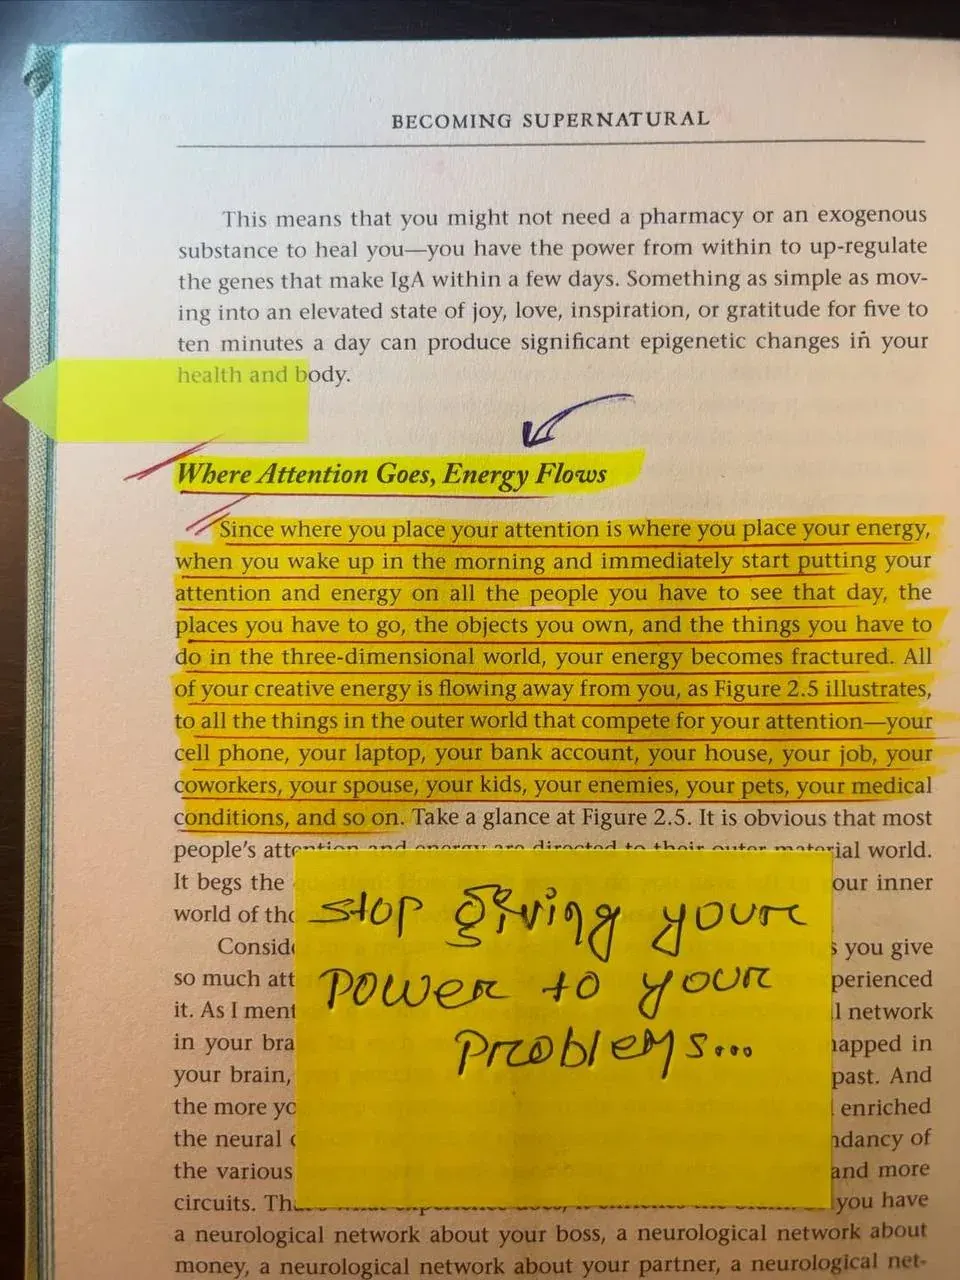 BECOMING SUPERNATURAL
This means that you might not need a pharmacy or an exogenous
substance to heal you—you have the power from within to up-regulate
the genes that make IgA within a few days. Something as simple as mov-
ing into an elevated state of joy, love, inspiration, or gratitude for five to
ten minutes a day can produce significant epigenetic changes in your
health and body.
Where Attention Goes, Energy Flows
Since where you place your attention is where you place your energy,
when you wake up in the morning and immediately start putting your
attention and energy on all the people you have to see that day, the
places you have to go, the objects you own, and the things you have to
do in the three-dimensional world, your energy becomes fractured. All
of your creative energy is flowing away from you, as Figure 2.5 illustrates,
to all the things in the outer world that compete for your attention—your
cell phone, your laptop, your bank account, your house, your job, your
coworkers, your spouse, your kids, your enemies, your pets, your medical
conditions, and so on. Take a glance at Figure 2.5. It is obvious that most
people's attention and energy are directed to their outer material world.
It begs the our inner
world of
stop giving your
power to your
problems...
you give
so much experienced
it. As I network
in your mapped in
your brain, past. And
the more enriched
the neural
the various and more
circuits. you have
a neurological network about your boss, a neurological network about
money, a neurological network about your partner, a neurological net-